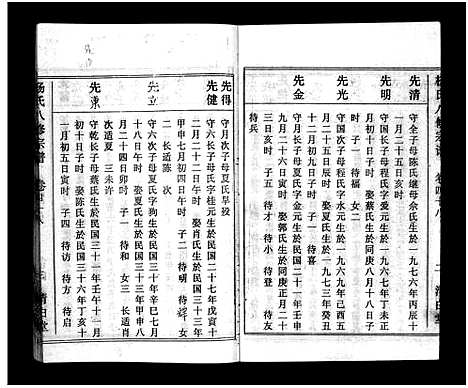 楊氏八修宗譜
卷四十八
清白堂
先清
守全子母陈氏继母余氏生於一九七六年辰十
二月二十五日午时
先明
守国长子母程氏字爱元生於一九六六年丙午
月初十日子时 娶蔡氏生於同庚八月十八日
戌时 子一 待福 女二
先光
守国次子母程氏字水元生於一九六九年己
二月二十五日辰时 娶夏氏生於一九七三年癸丑
二月二十日亥时 子一 待喜
先金
守国三子母程氏字金元生於一九七二年壬子
月初十日丑时 娶郭氏生於同庚正月二十
日子时 子三 待小 待登 待友
待兵
先得
守月子母夏氏早殁
先健
守六长子母氏字桂元生於民国二十七年戊寅十
二月二十二日午时 娶肖氏生於民国三十三年
甲申七月初三日午时 子二 待明 待辉 女
二 长适陈 次
先立
守六次子母夏氏字狗生於民国三十年辛巳七月
十二日卯时 娶夏氏生於民国三十三年甲申八
月二十四日卯时 子一 待和 女三 长适肖
次适夏 三未许
先东
守乾长子母蔡氏生於民国三十一年壬午十一月
初八日寅时 娶陈氏生於民国三十六年丁亥十
一月初五日寅时 子四 待访 待方 待启
楊氏八修宗譜
清白堂